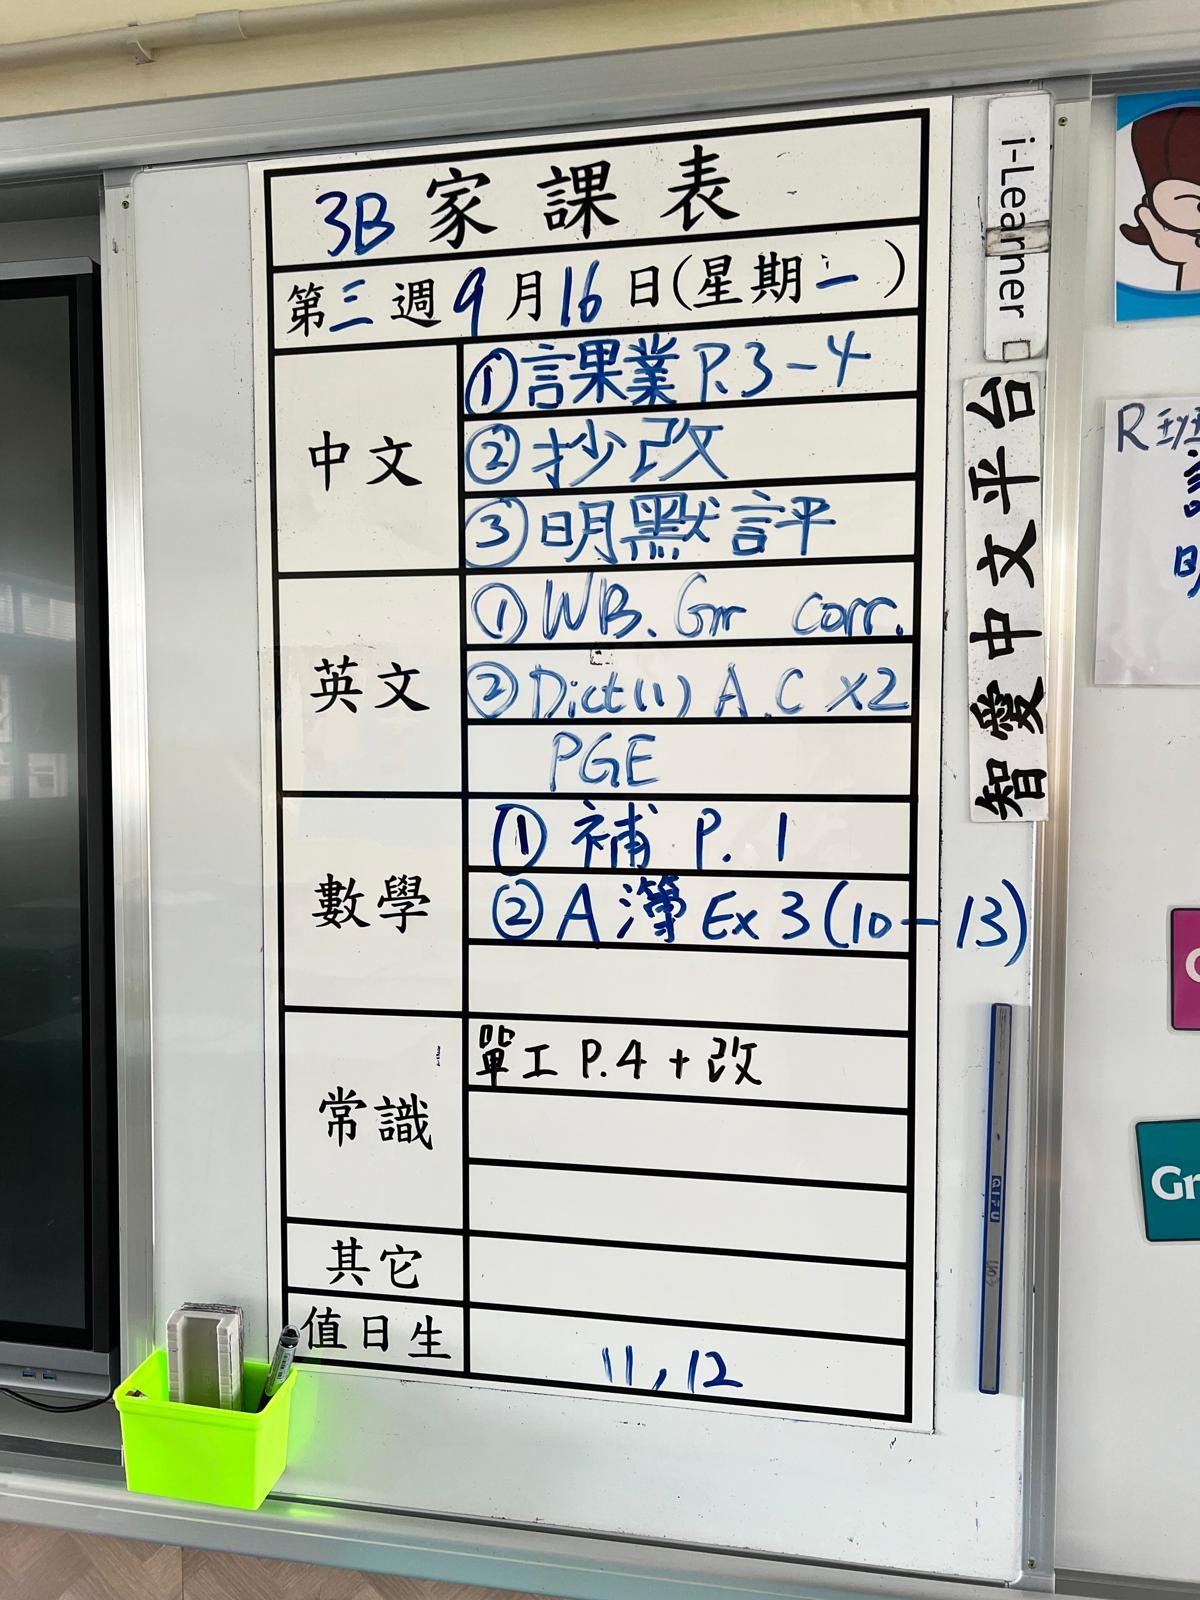 3B 家課表
第三週 9月16日(星期一)
中文
①課業 P.3-4
②抄改
③明默評
英文
①WB. Gr corr.
②Dict(1) A.C x2
PGE
數學
① 補 P. 1
② A簿 Ex 3 (10-13)
常識
單工 P.4 + 改
其它
值日生
11, 12
i-Learner
智愛中文平台
R
Gr